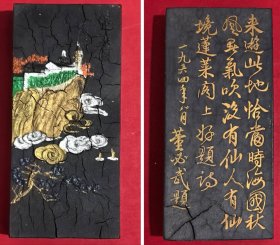 来游此地恰当时海国秋
风未气吹没有仙人有仙
境蓬莱阁上好题诗
一九六四年八月 董必武题